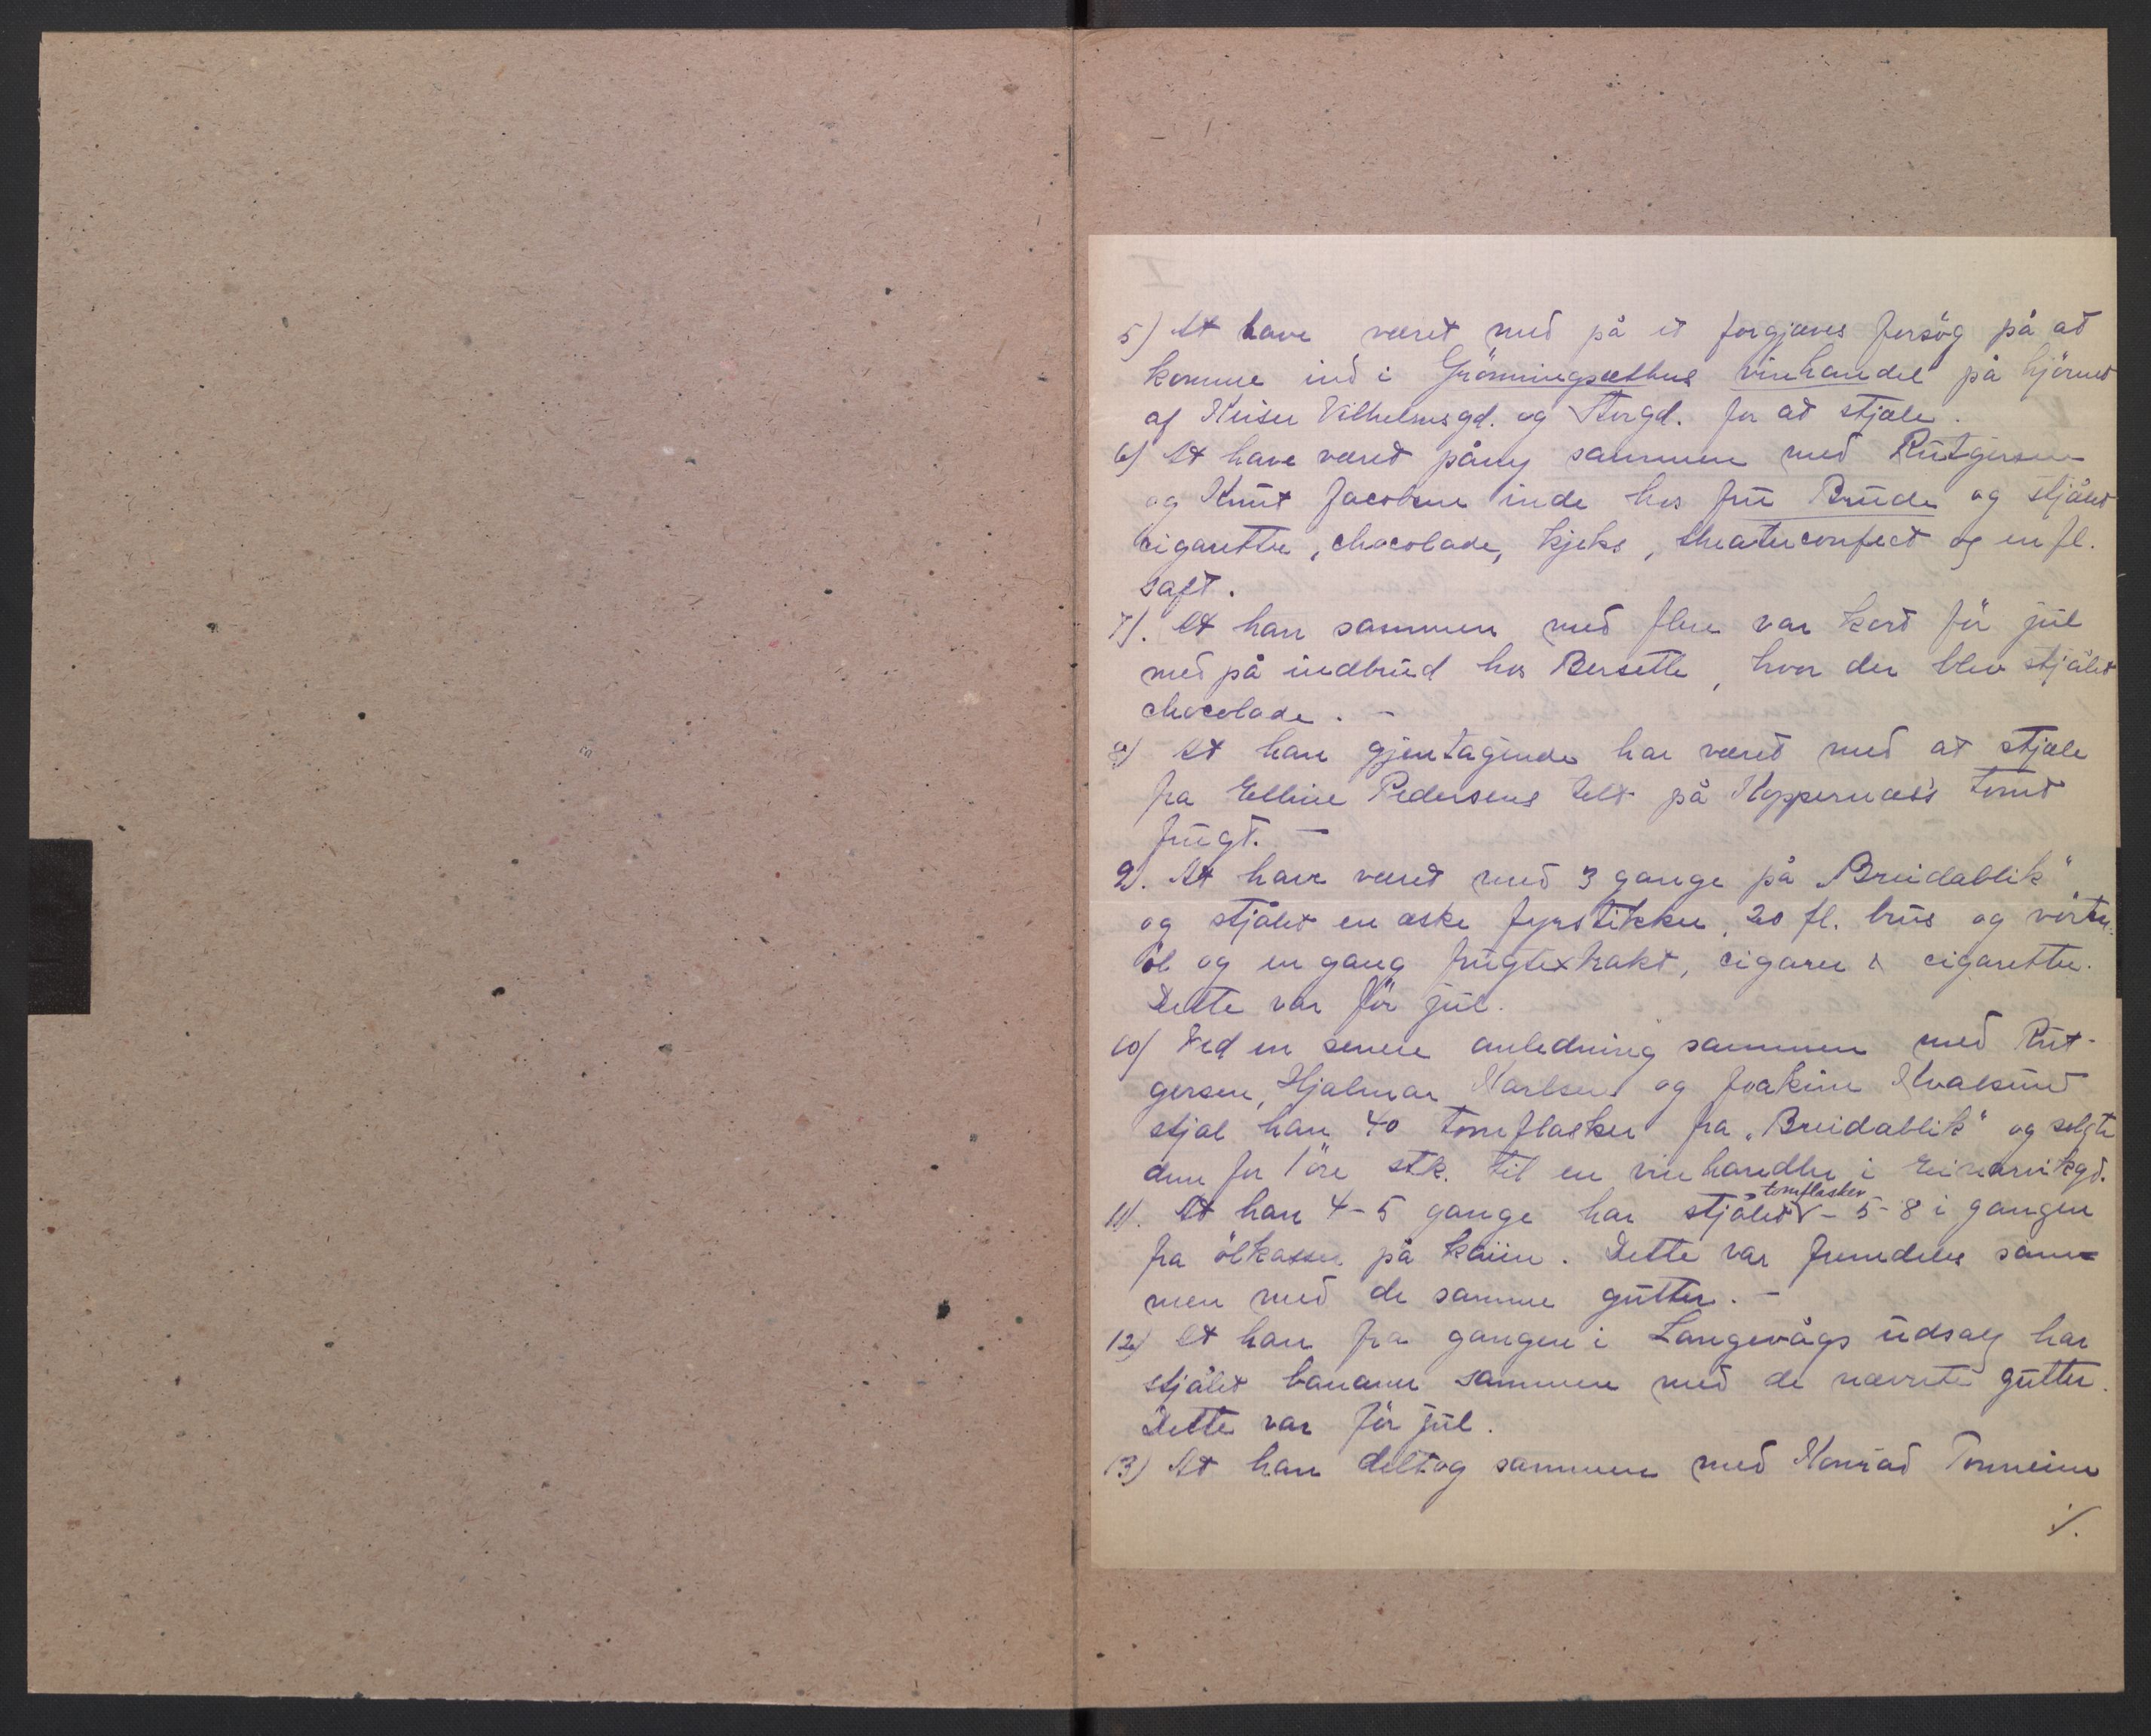 5) At have været med på et forgjæves forsøg på at
komme ind i Grönningsæthers vinhandel på hjörnet
af Keiser Vilhelmsgd. og Storgd. for at stjæle.
6) At have været påny sammen med Rutgersen
og Knut Jacobsen inde hos fru Brude og stjålet
cigaretter, chocolade, kjeks, theaterconfect og en fl.
saft.
7). At han sammen med flere var kort för jul
med på indbrud hos Bersette, hvor der blev stjålet
chocolade. -
8) At han gjentagende har været med at stjæle
fra Elline Pedersens telt på Koppernæs's tomt
frugt. -
9). At have været med 3 gange på "Breidablik"
og stjålet en æske fyrstikker, 20 fl. brus og vörter-
öl og en gang frugtextrakt, cigarer & cigaretter.
Dette var för jul.
10) Ved en senere anledning sammen med Rut-
gersen, Hjalmar Karlsen og Joakim Kvalsund
stjal han 40 tomflasker fra "Breidablik" og solgte
dem for 1 öre stk. til en vinhandler i Einarvikgd.
11). At han 4-5 gange har stjålet tomflasker - 5-8 i gangen
fra ölkasser på kaien. Dette var fremdeles sam-
men med de samme gutter. -
12) At han fra gangen i Langevågs udsalg har
stjålet bananer sammen med de nævnte gutter.
Dette var för jul.
13) At han deltog sammen med Konrad Tonneim
./.